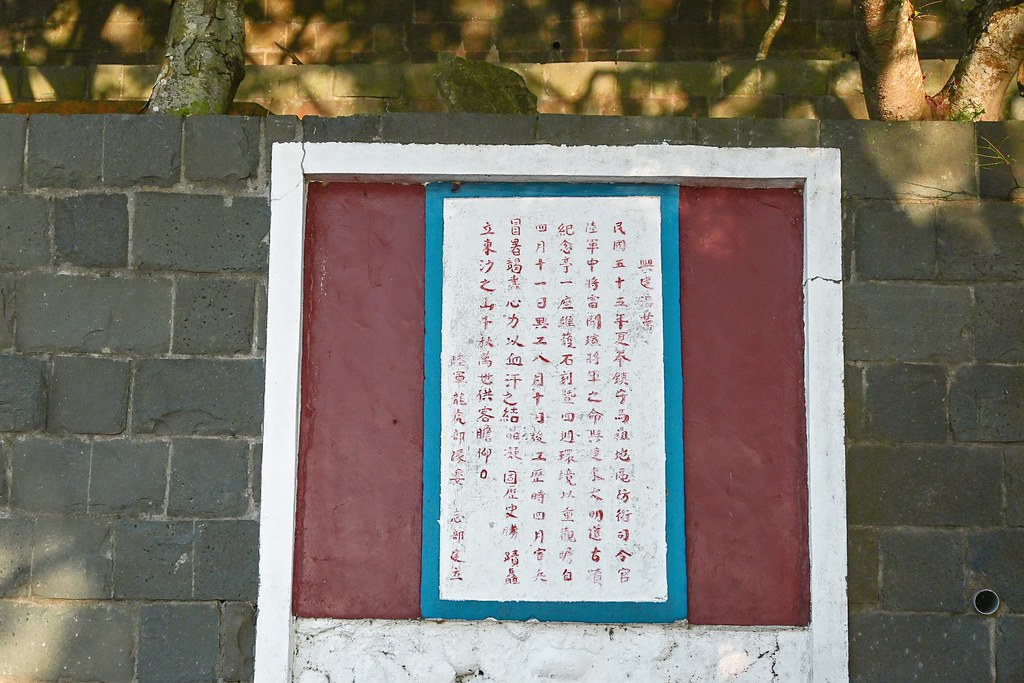 興建碑葉
民國五十五年夏奉鎮守馬祖地區防衛司令官
陸軍中將雷開瑄將軍之命興建東犬明道古蹟
紀念亭一座維護石刻暨四週環境以重觀瞻自
四月十一日興工八月十日竣工歷時四月官兵
冒暑竭盡心力以血汗之結晶凝固歷史勝蹟矗
立東沙之山千秋萬世供客瞻仰。
陸軍龍虎部隊 志部建立